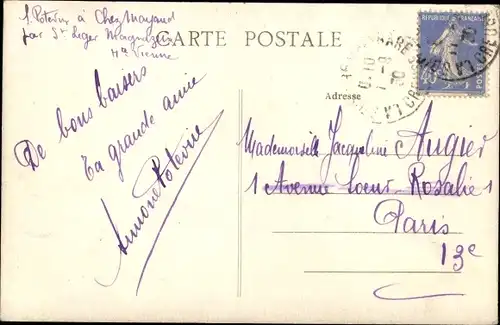 S. Potevin à Chez Mayaud
par St Leger Magnazeix
Hte Vienne
CARTE POSTALE
REPUBLIQUE FRANÇAISE
40
POSTES
Adresse
De bons baisers
Ta grande amie
Simone Potevin
Mademoiselle Jacqueline Augier
1 Avenue Soeur-Rosalie 1
Paris
13e